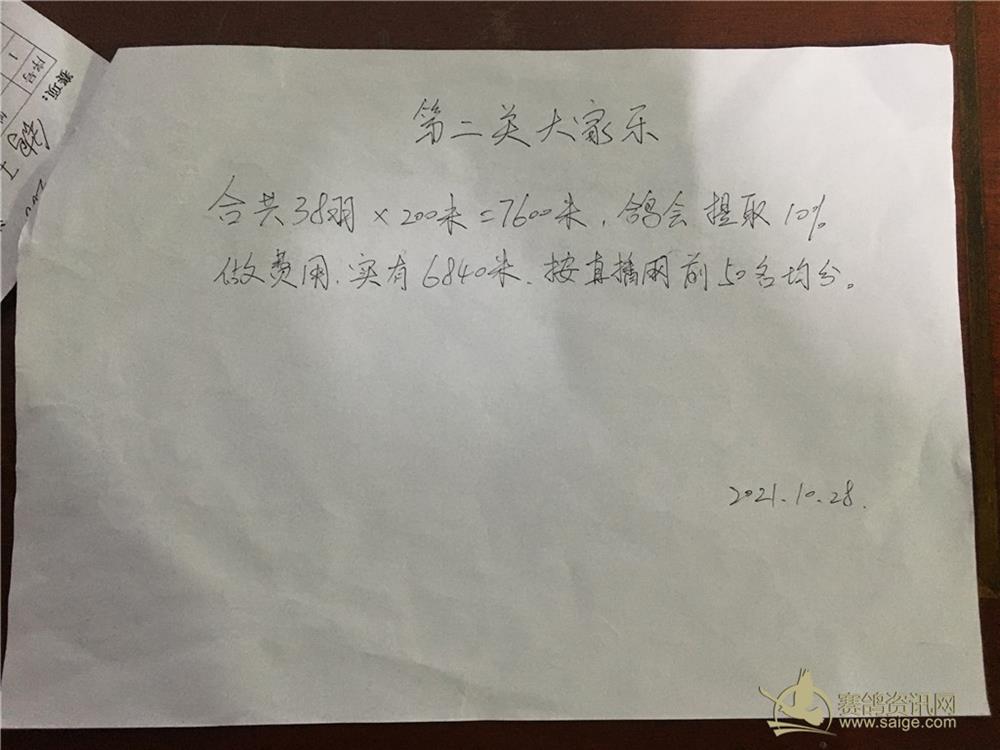 第二关大家乐
合共38羽×200米=7600米,鸽会提取10%
做费用.实有6840米.按直播网前50名均分。
2021.10.28.
赛项:
序号
1
赛鸽资讯网
www.saige.com